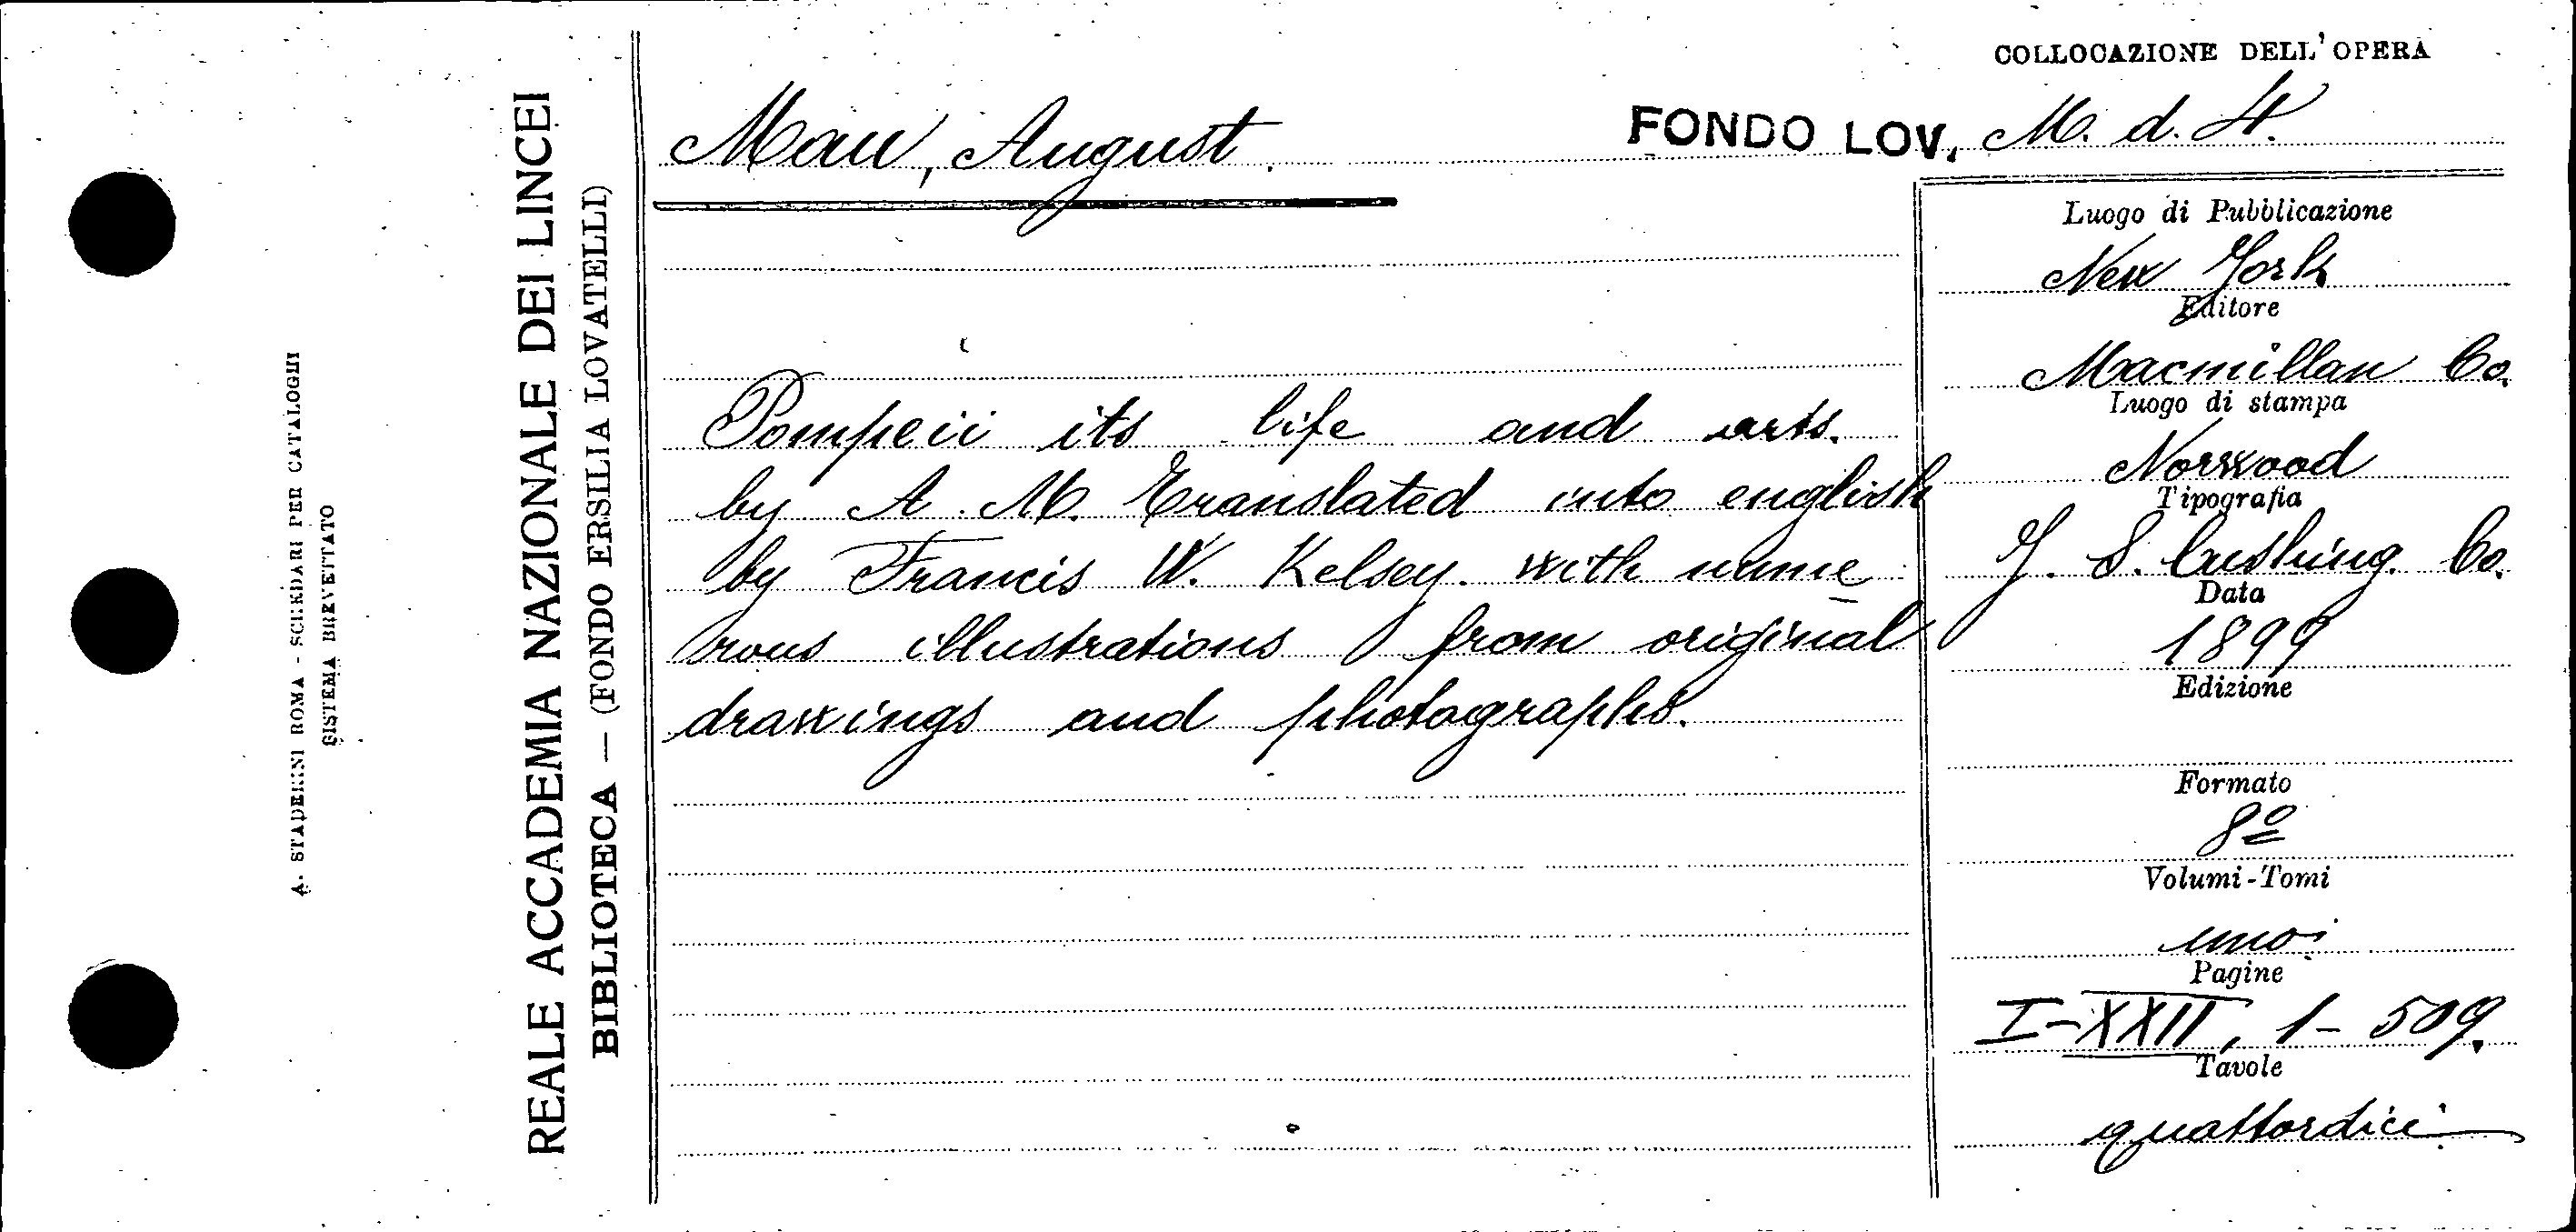 A. STADERINI ROMA - SCHEDARI PER CATALOGHI
SISTEMA BREVETTATO
REALE ACCADEMIA NAZIONALE DEI LINCEI
BIBLIOTECA — (FONDO ERSILIA LOVATELLI)
COLLOCAZIONE DELL'OPERA
Mau, August.
FONDO LOV. M. d. 4.
Pompeii its life and arts.
by A. M. Translated into english
by Francis W. Kelsey. with nume
rous illustrations from original
drawings and photographs.
Luogo di Pubblicazione
New York
Editore
Macmillan Co.
Luogo di stampa
Norwood
Tipografia
J. S. Cushing. Co.
Data
1899
Edizione
Formato
8º
Volumi-Tomi
uno
Pagine
I-XXII, 1-509.
Tavole
quattordici